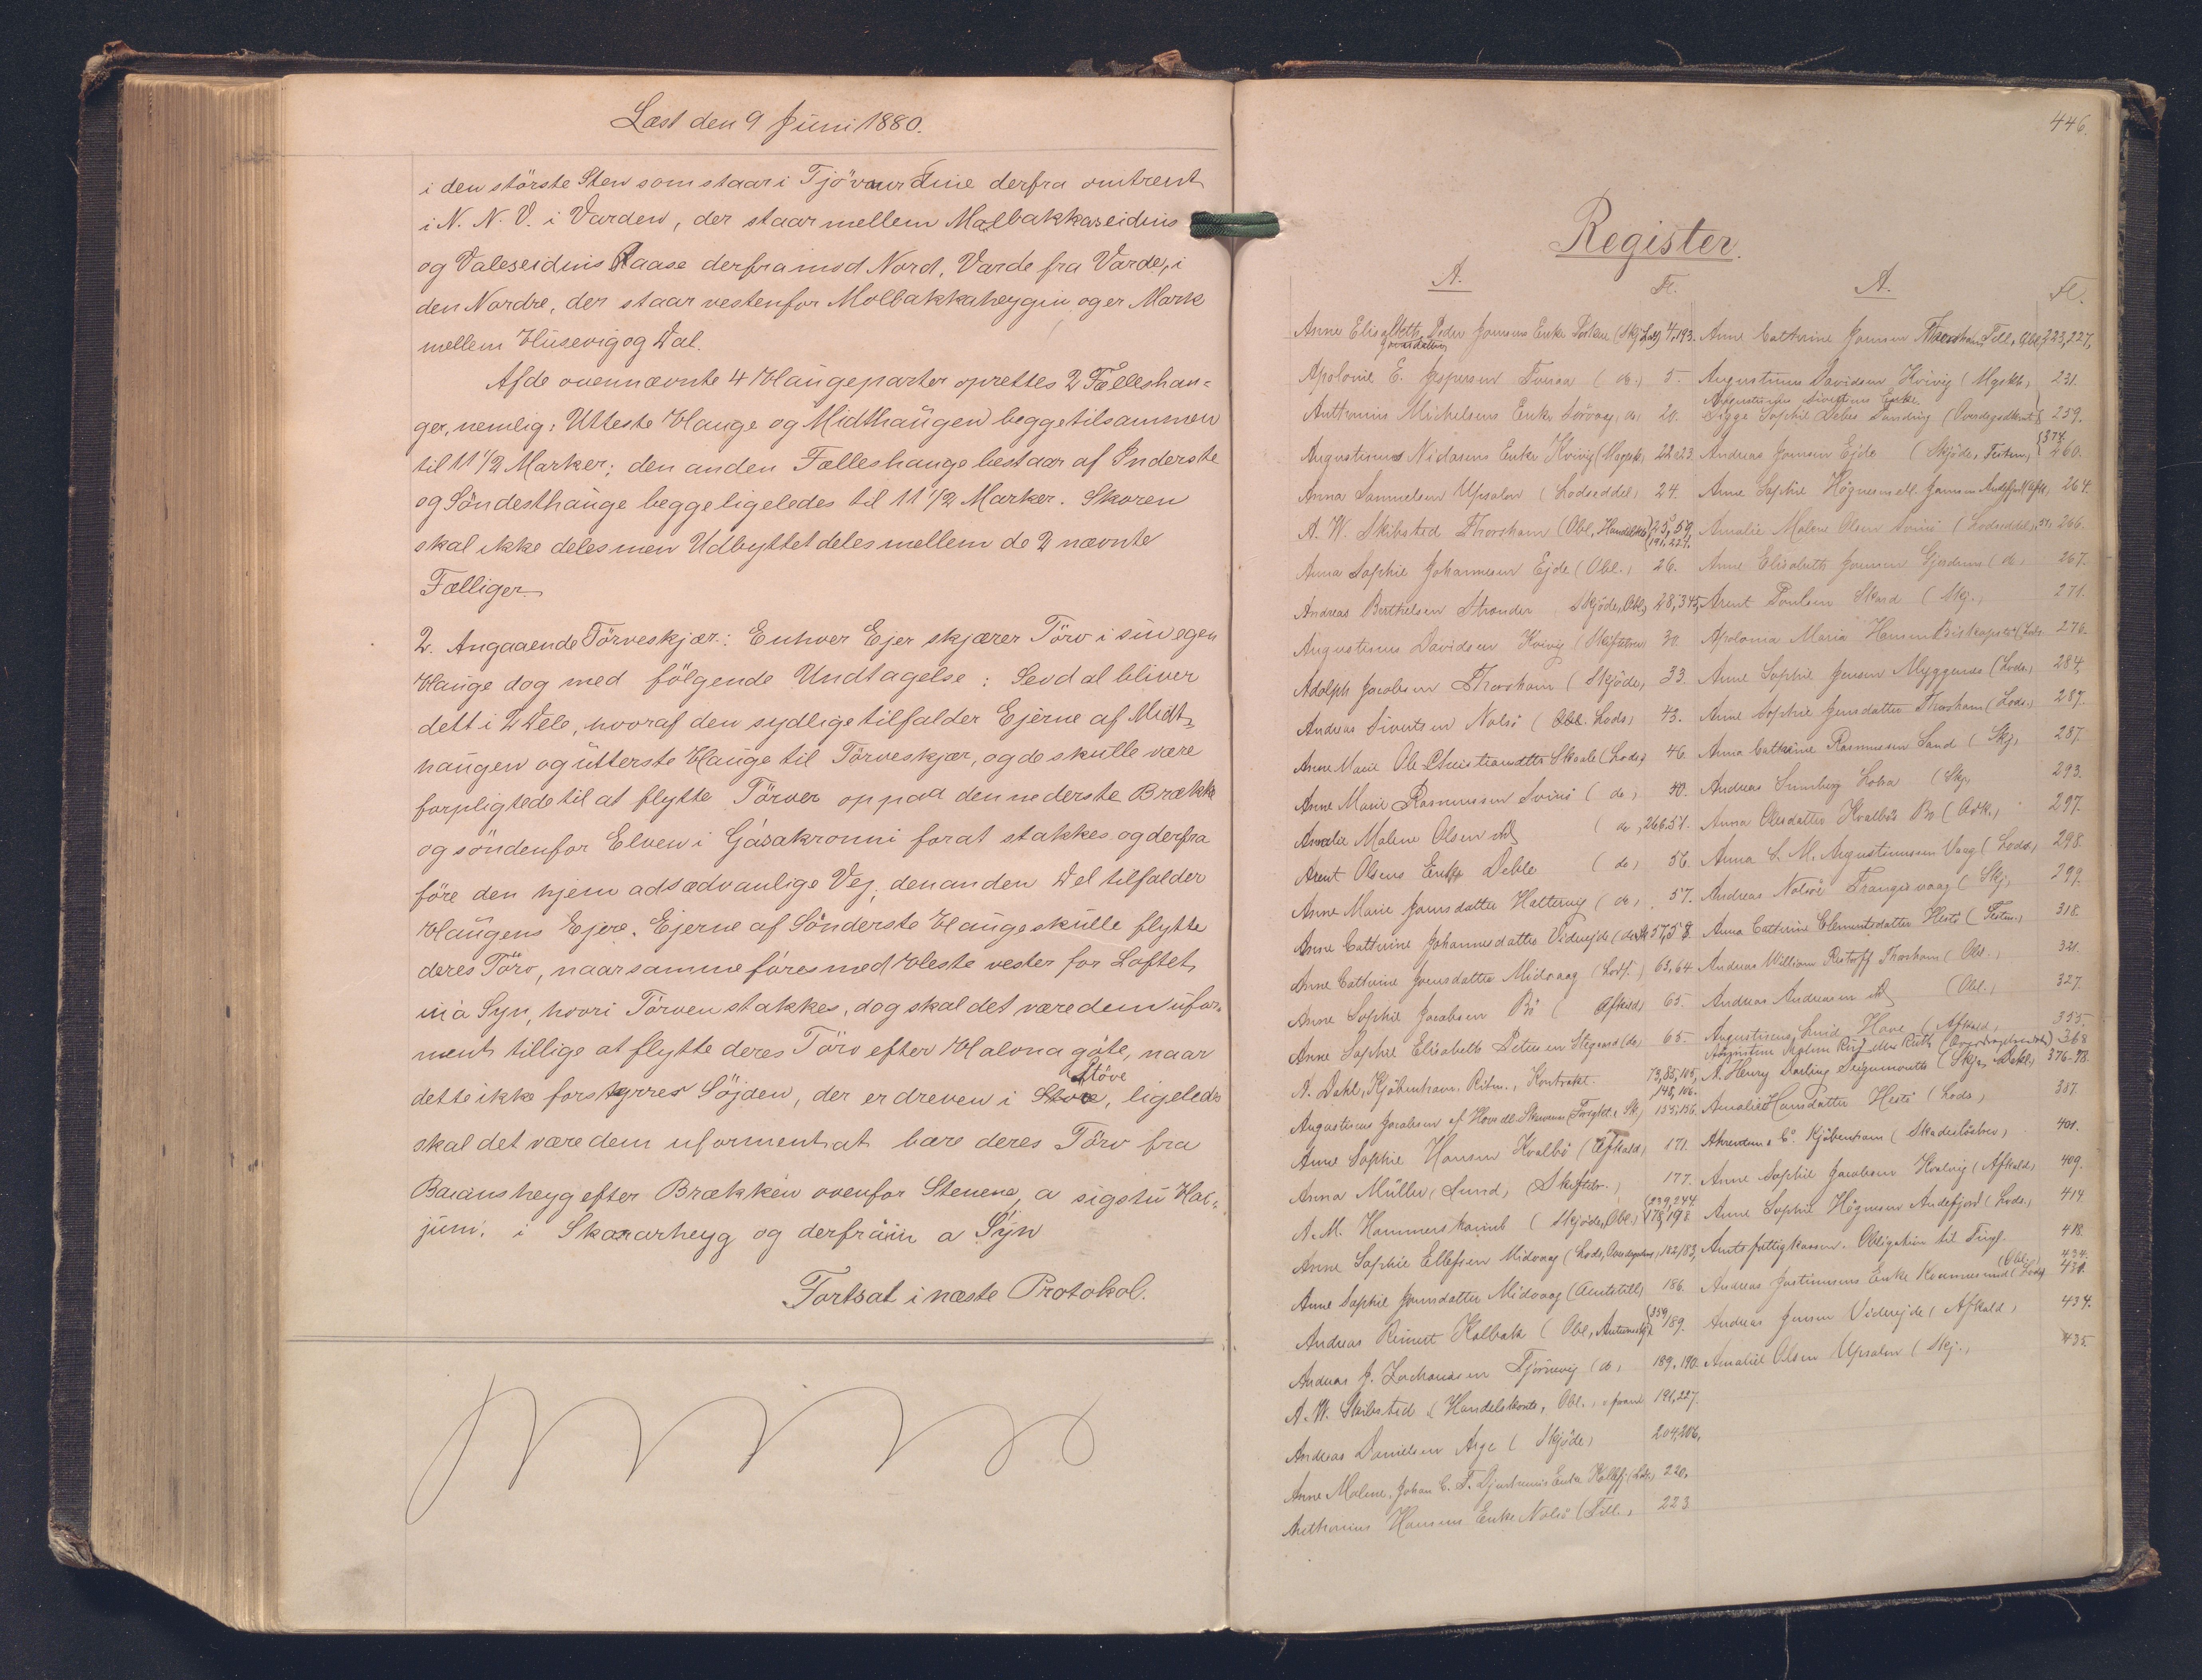 Læst den 9 Juni 1880.
i den störste Sten som staar i Tjövaur derfra omtrent
i N. N. V. i Varden, der staar mellem Malbakkaseidins
og Valeseidins Raase derfra mod Nord, Varde fra Varde, i
den Nordre, der staar vestenfor Molbakkaheygin og er Mark
mellem Husevig og Dal.
Af de ovennævnte 4 Haugeparter oprettes 2 Fælleshau=
ger, nemlig: Utteste Hauge og Midthaugen begge tilsammen
til 11 1/2 Marker; den anden Fælleshauge bestaar af Inderste
og Söndesthauge begge ligeledes til 11 1/2 Marker. Skoren
skal ikke deles men Udbyttet deles mellem de 2 nævnte
Fælliger.
2. Angaaende Törveskjær: Enhver Ejer skjærer Törv i sin egen
Hauge dog med fölgende Undtagelse: Sevdal bliver
delt i 2 Dele, hvoraf den sydlige tilfalder Ejerne af Midt=
haugen og ütterste Hauge til Törveskjær, og de skulle være
forpligtede til at flytte Törver op paa den nederste Brække
og söndenfor Elven i Gásakronni forat stakkes og derfra
före den hjem ad sædvanlige Vej, den anden Del tilfalder
Haugens Ejere. Ejerne af Sönderste Hauge skulle flytte
deres Törv, naar samme föres med Heste vester for Loftet
in á Syn, hvori Törven stakkes, dog skal det være dem ufor=
ment tillige at flytte deres Törv efter Halona göte, naar
dette ikke forstyrres Söjden, der er dreven i Stöve, ligeledes
skal det være dem uforment at bære deres Törv fra
Baransheyg efter Brækken ovenfor Stenene, a sigstu Hal=
juni. i Skorarheyg og derfra in a Syn
Fortsat i næste Protokol.
446.
Register.
A. Fl. A. Fl.
Anne Elisabeth, Peder Joensens Enke (Skj. Lods) 4, 193. Anne Cathrine Joensen Thorshavn Till. Obl. 223, 227,
Apolonie E. Jespersen (do.) 5. Augustinus Davidsen Kvivig (Mgskb) 231.
Anthonius Michelsens Enke Sörvaag, do 20. Sigga Sophie Debes Sanding 239.
Augustinus Nidasens Enke Kvivig 22, 23 Andreas Joensen Ejde (Skjöde, Testm.) 374. 260.
Anna Samuelsen Upsalen (Lodseddel) 24. Anne Sophie Högnesen 264.
A. W. Skibsted Thorshavn (Obl, Handelskt) 25, 59, 191. 227. Amalie Malene Olsen (Lodseddel) 51. 266.
Anna Sophie Johannesen Ejde (Obl.) 26. Anne Elisabeth Joensen (do) 267.
Andreas Berthelsen Strænder Skjöde, Obl, 28, 345, Arent Poulsen Skard (Skj.) 271.
Augustinus Davidsen Kvivig (Skiftebrev) 30. Apolonia Maria Hansen 276.
Adolph Jacobsen Thorshavn (Skjöde) 33. Anne Sophie Jensen Myggenæs (Lods.) 284.
Andreas Sivertsen Nolsö (Lods) 43. Anne Sophie Jensdatter Thorshavn (Lods.) 287.
Anne Marie Ole Christiansdtter Skaale (Lods) 46. Anna Cathrine Rasmussen Sand (Skj) 287.
Anne Marie Rasmussen (do) 50. Andreas Sumberg Lobra (Skj. 293.
Amalia Malene Olsen (do, 266. 51. Anna Olesdatter Hvalbö 297.
Arent Olsens Enke Deble (do) 56. Anna S. M. Augustinussen Vaag (Lods) 298.
Anne Marie Joensdatter Haltervig (do) 57. Andreas Nolsöe Trangisvaag (Skj) 299.
Anne Cathrine Johannesdatter Viderejde 57, 58. Anna Cathrine Clementsdatter Hestö (Testm.) 318.
Anne Cathrine Joensdatter Midvaag (Lods.) 63, 64 Andreas William Restorff Thorshavn (Obl.) 321.
Anne Sophie Jacobsen Bö (Afkald) 65. Andreas Andreasen (Obl.) 327.
Anne Sophie Elisabeth Petersen Stegaard (do) 65. Augustinus Lund Hove (Afkald, 355.
368
A. Dahl, Kjöbenhavn, Kontrakt. 73, 85, 105, 145, 106. A. Henry Darling (Skj. 376. 78.
Augustinus Jacobsen af Hove 155, 156. Amalie Hansdatter Hestö (Lods) 387.
Anne Sophie Hansen Kvalbö (Afkald) 171. Ahrentsen & Co. Kjöbenhavn (Skadeslösbrev) 401.
Anna Müller, Sund, (Skiftebr.) 177. Anne Sophie Jacobsen Hvalvig (Afkald) 409.
A. M. Hammershaimb (Skjöde, Obl.) 239, 244 178, 198 Anne Sophie Högnesen Andefjord (Lods) 414.
Anne Sophie Ellefsen Midvaag 182/183, Amtsfattigkassen. Obligation til Tingl. 418.
Anne Sophie Joensdatter Midvaag (Amtstill) 186. Andreas Justinussens Enke (Obl.) 424. 431.
Andreas Reinert Kalbak (Obl, 339/189. Andreas Jensen Viderejde (Afkald) 434.
Andreas J. Zachariasen Tjörnevig (do) 189, 190. Amalie Olsen Upsalen (Skj.) 435.
A. W. Skibsted (Handelskonto, Obl. 191, 227.
Andreas Danielsen Arge (Skjöde) 204, 206,
Anne Malene, Johan C. T. Enke 220.
Anthonius Hansens Enke Nolsö (Till.) 223